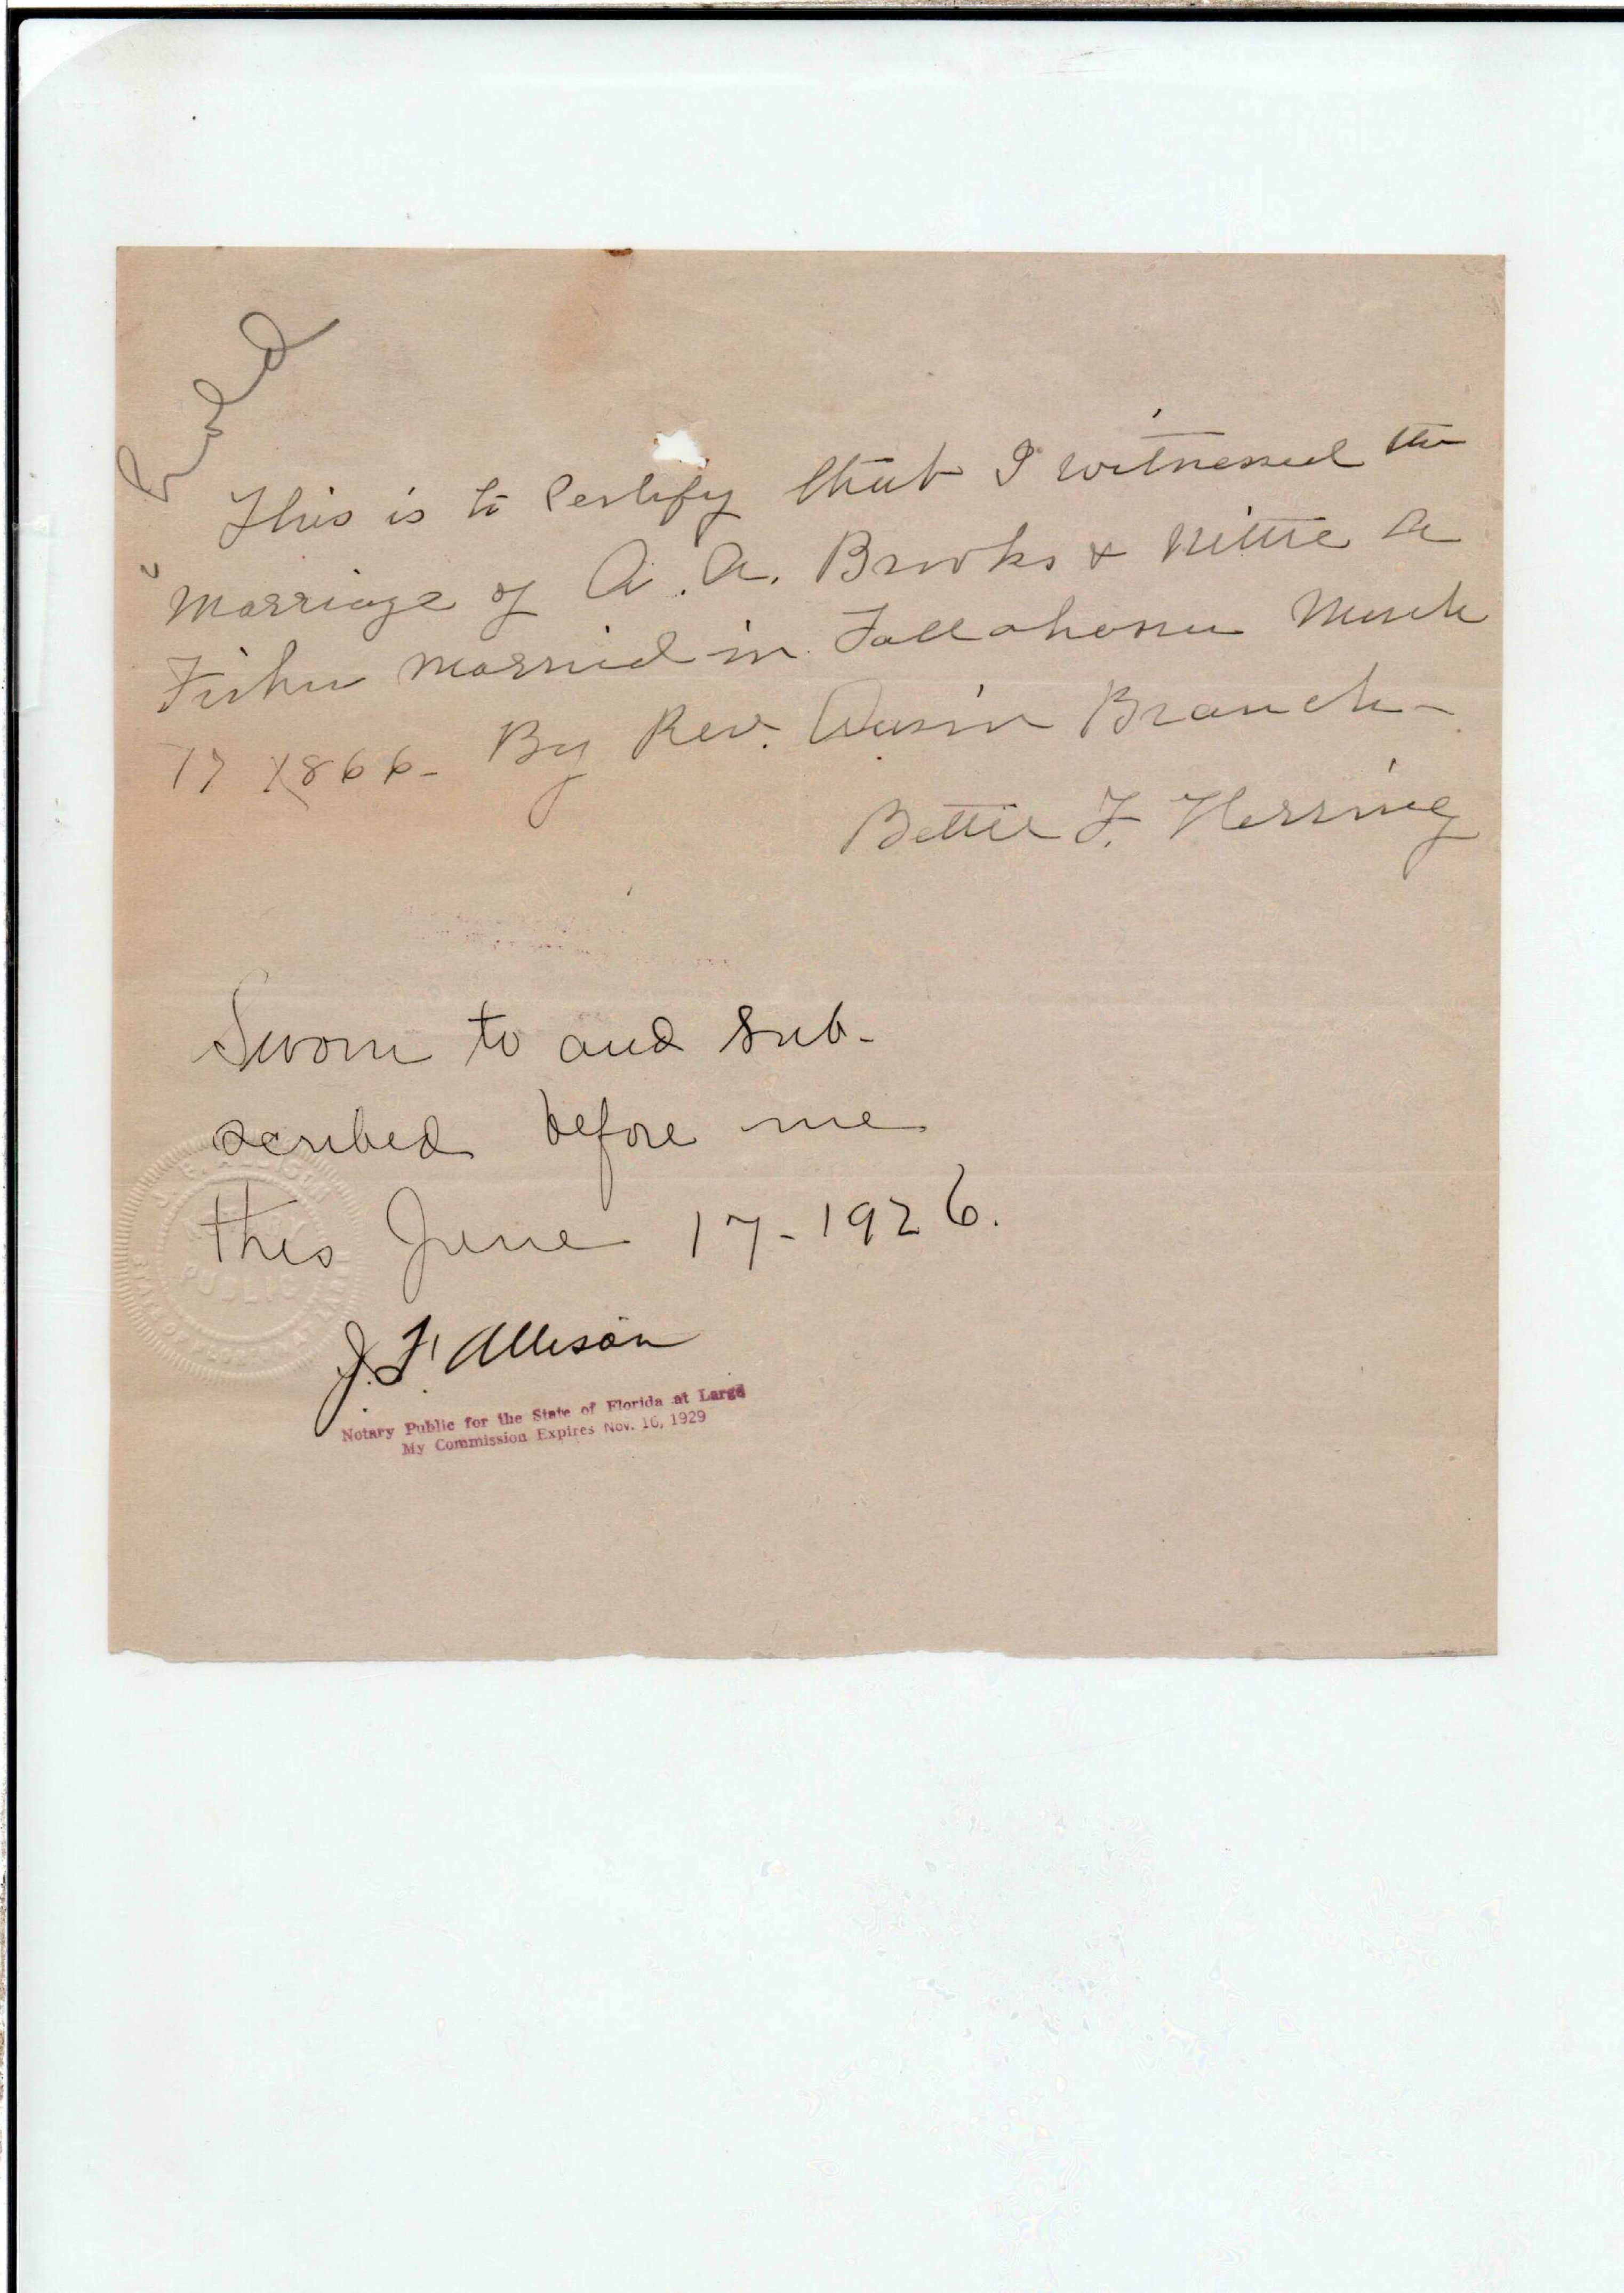 This is to Certify that I witnessed the
Marriage of A. A. Brooks & Nettie A
Fisher married in Tallahassee March
17 1866 - By Rev. Branch -
Bettie F. Herring
Sworn to and sub-
scribed before me
this June 17 - 1926.
J. F. Allison
Notary Public for the State of Florida at Large
My Commission Expires Nov. 16, 1929
J. F. ALLISON
NOTARY
PUBLIC
STATE OF FLORIDA AT LARGE